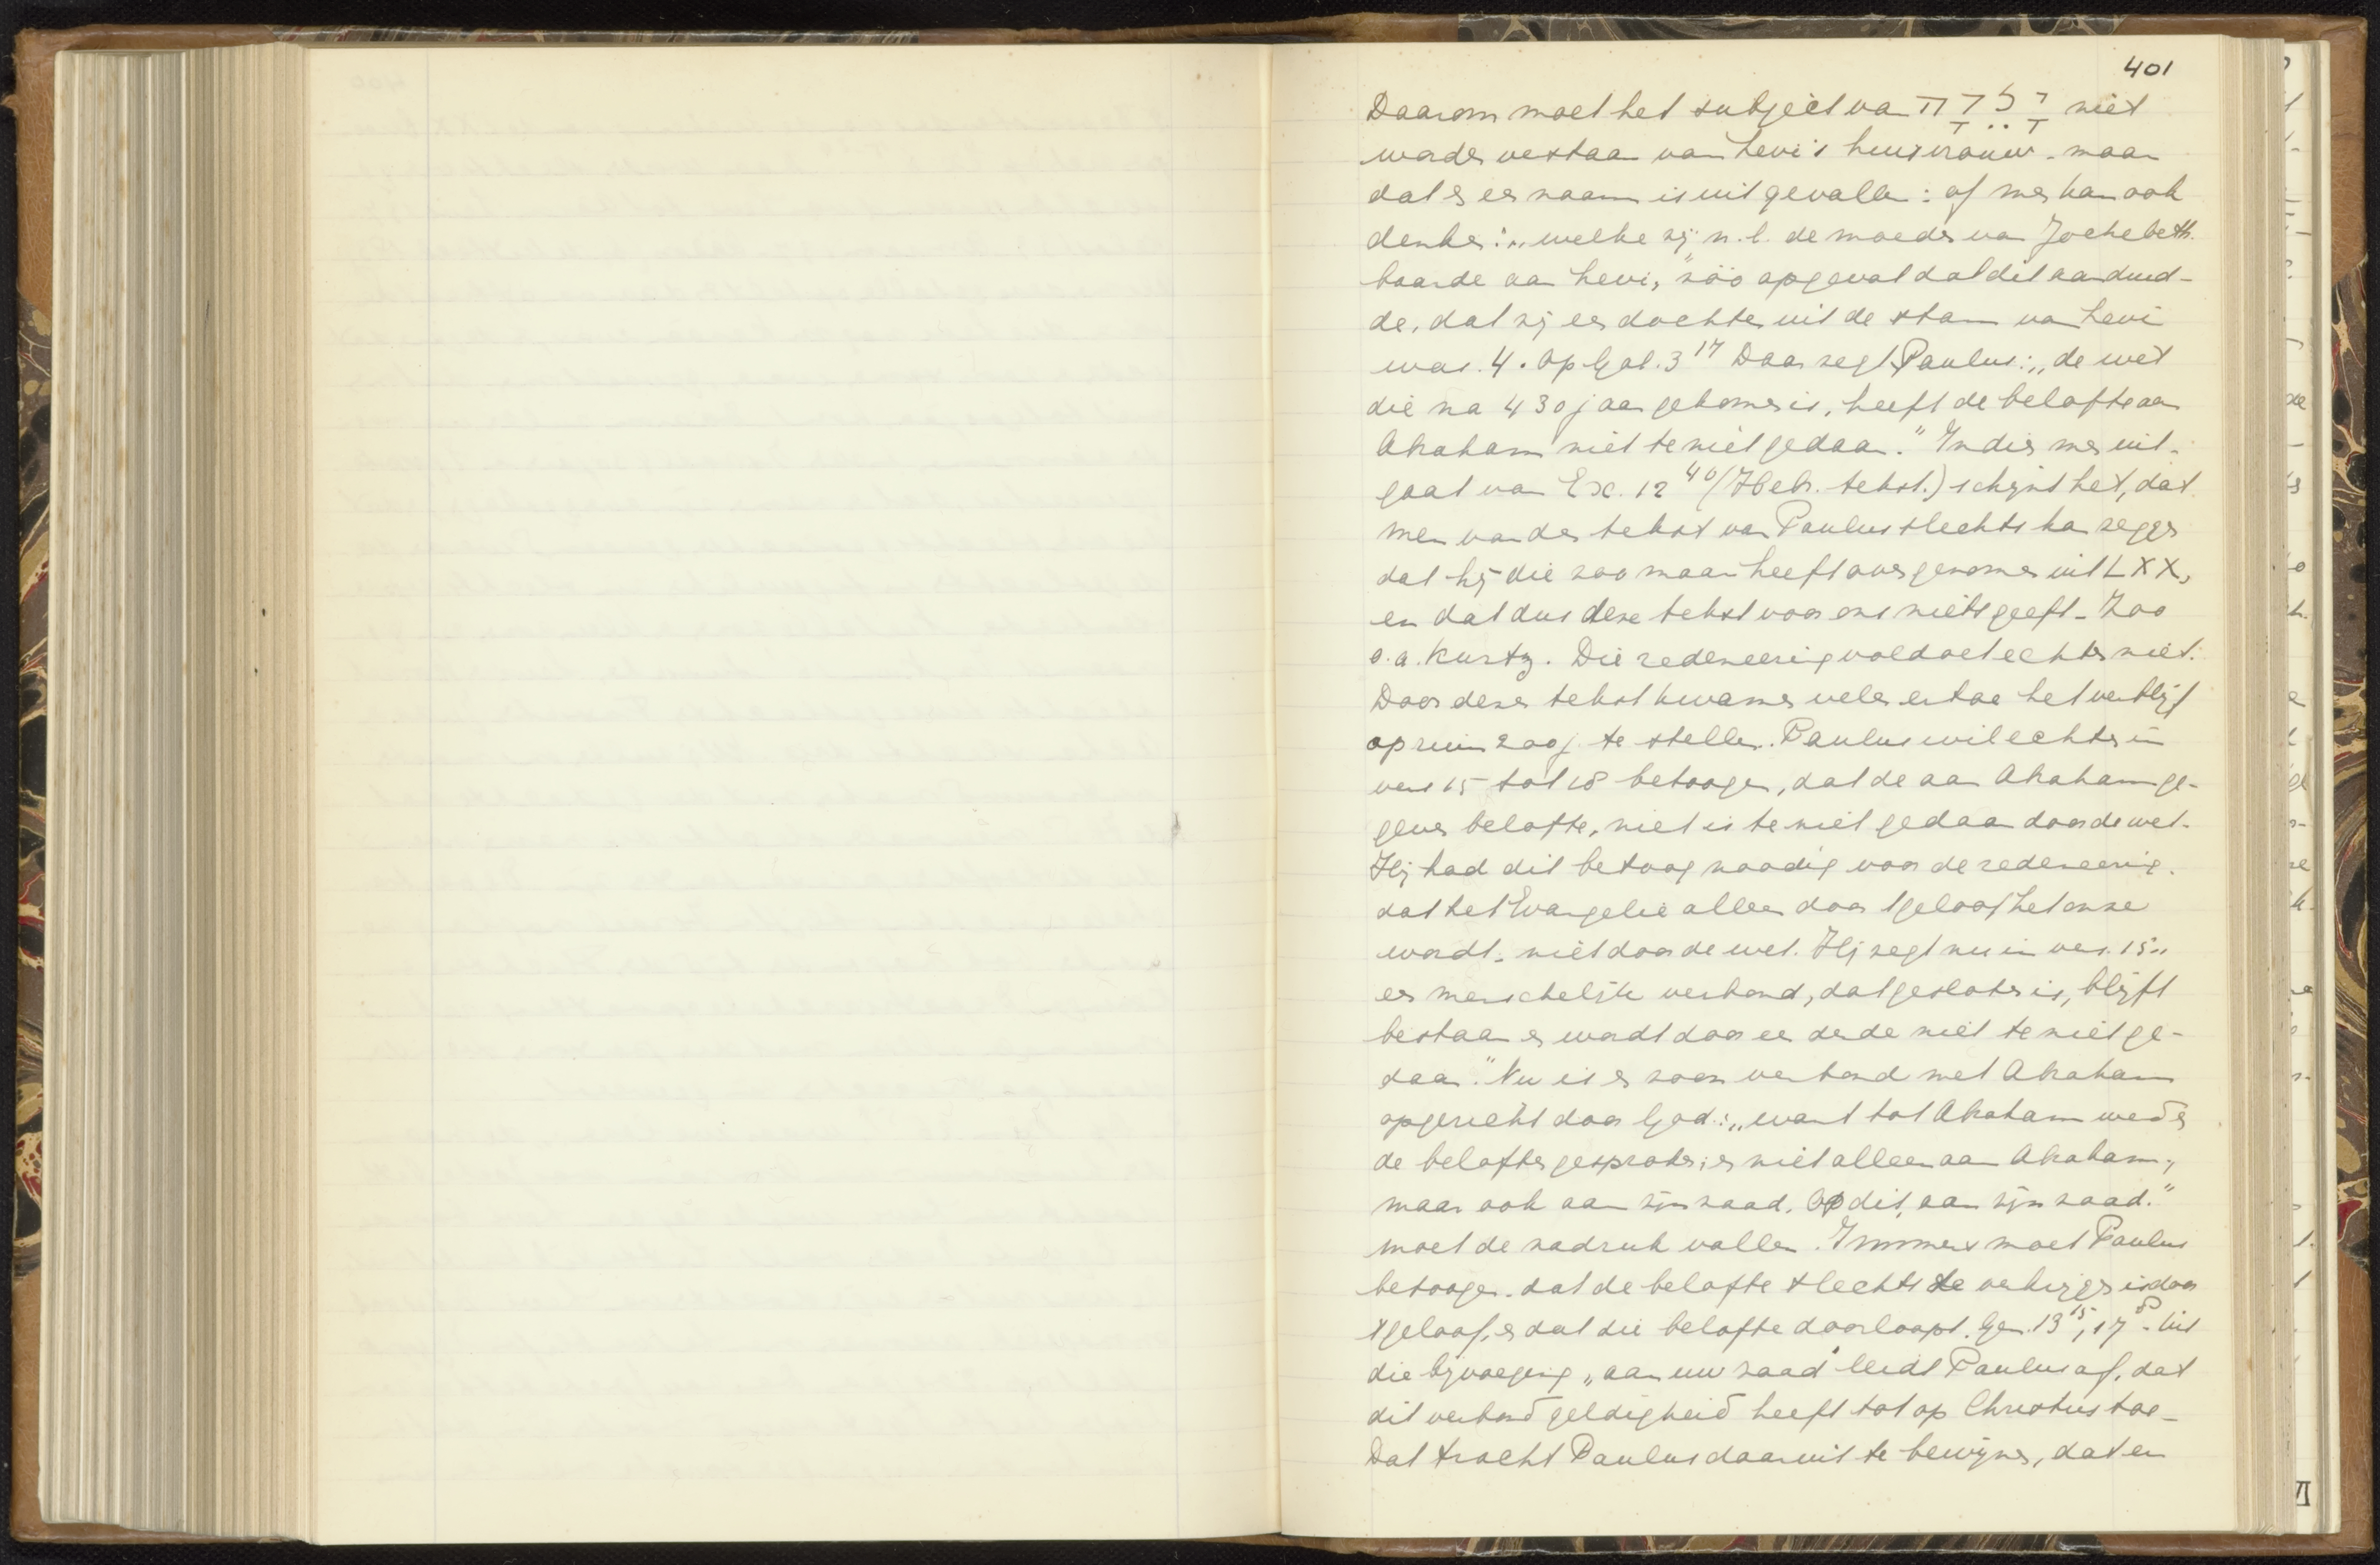 401
Daarom moet het subject van יָלְדָה niet
worden verstaan van Levi's huisvrouw - maar
dat er een naam is uitgevallen : of men kan ook
denken : „welke zij" n.l. de moeder van Jochebeth.
baarde aan Levi, zóó opgevat dat dit aanduid-
de, dat zij een dochter uit de stam van Levi
was. 4. Op Gal. 3 17 Daar zegt Paulus : „de wet
die na 430 jaar gekomen is, heeft de belofte aan
Abraham niet te niet gedaan." Indien men uit-
gaat van Ex. 12 40 (Hebr. tekst.) schijnt het, dat
men van den tekst van Paulus slechts kan zeggen
dat hij die zoo maar heeft overgenomen uit LXX,
en dat dus deze tekst voor ons niets geeft - Zoo
o.a. Kurtz. Die redeneering voldoet echter niet.
Door dezen tekst kwamen velen ertoe het verblijf
op ruim 200 j. te stellen. Paulus wil echter in
vers 15 tot 18 betoogen, dat de aan Abraham ge-
geven belofte, niet is te niet gedaan door de wet.
Hij had dit betoog noodig voor de redeneering.
dat het Evangelie alleen door 't geloof het onze
wordt. niet door de wet. Hij zegt nu in vers. 15 „
een menschelijk verbond, dat gesloten is, blijft
bestaan en wordt door een derde niet te niet ge-
daan." Nu is er zoo'n verbond met Abraham
opgericht door God : „want tot Abraham werden
de beloften gesproken ; en niet alleen aan Abraham ;
maar ook aan zijn zaad. Op dit „aan zijn zaad."
moet de nadruk vallen. Immers moet Paulus
betoogen. dat de belofte slechts te verkrijgen is door
't geloof, en dat die belofte doorloopt. Gen. 13 15, 17 8. Uit
die bijvoeging „aan uw zaad" leidt Paulus af, dat
dit verbond geldigheid heeft tot op Christus toe -
Dat tracht Paulus daaruit te bewijzen, dat er